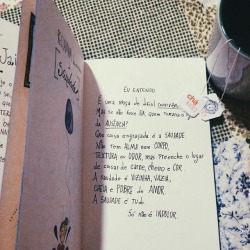 EU ENTENDO
É uma moça de difícil
Mas se não fosse ela, quem
da AUSÊNCIA?
Que coisa engraçada é a SAUDADE
Não TEM ALMA nem CORPO,
TEXTURA ou ODOR, mas PREENCHE o lugar
de coisas de carne, cheiro e COR.
A saudade é VIZINHA, VAZIA,
CHEIA e POBRE de AMOR.
A SAUDADE É TUDO.
Só não é INDOLOR.
Saudade
chá